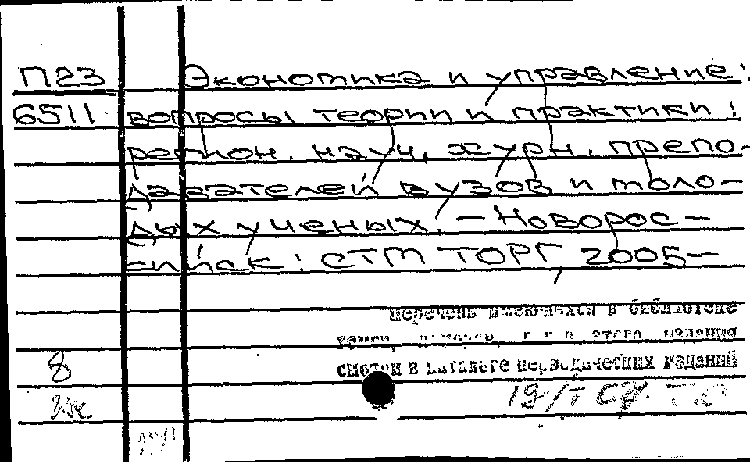 П23 Экономика и управление:
6511 вопросы теории и практики:
регион. науч. журн. препо-
давателей вузов и моло-
дых ученых. – Новорос-
сийск: СТМ ТОРГ, 2005–
перечень имеющихся в библиотеке
этого издания
смотри в каталоге периодических изданий
8